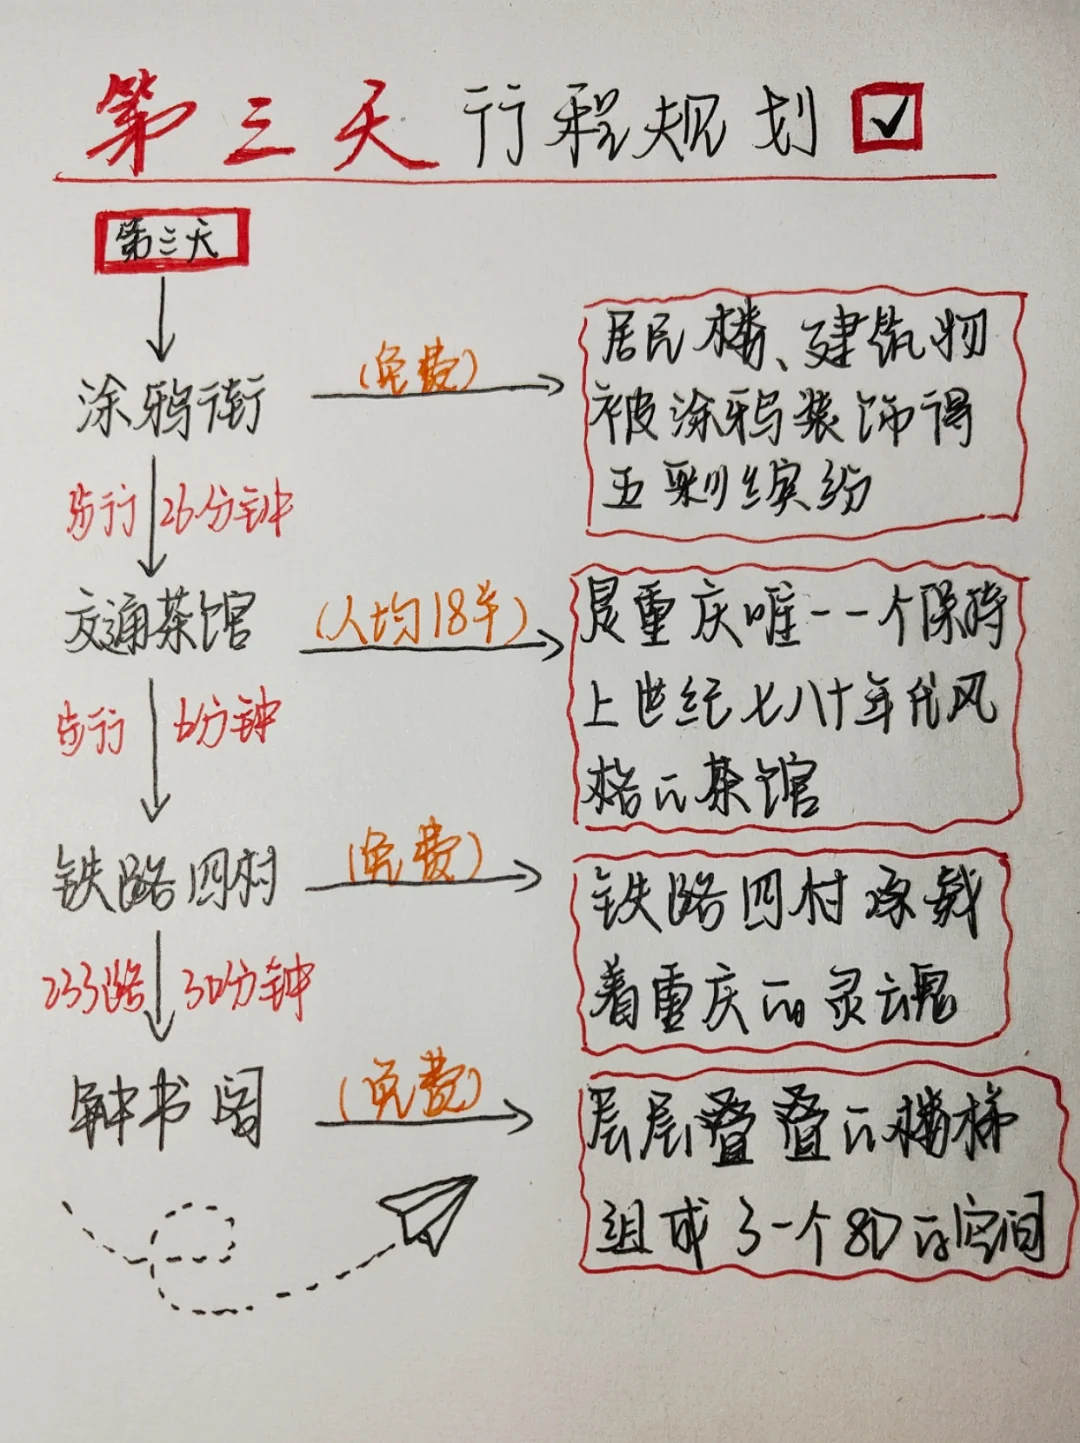 第三天行程规划
第三天
涂鸦街
(免费)
居民楼、建筑物
被涂鸦装饰得
五彩缤纷
步行 26分钟
交通茶馆
(人均18羊)
是重庆唯一一个保持
上世纪七八十年代风
格的茶馆
步行 6分钟
铁路四村
(免费)
铁路四村承载
着重庆的灵魂
233路 30分钟
钟书阁
(免费)
层层叠叠的楼梯
组成了一个8D的空间